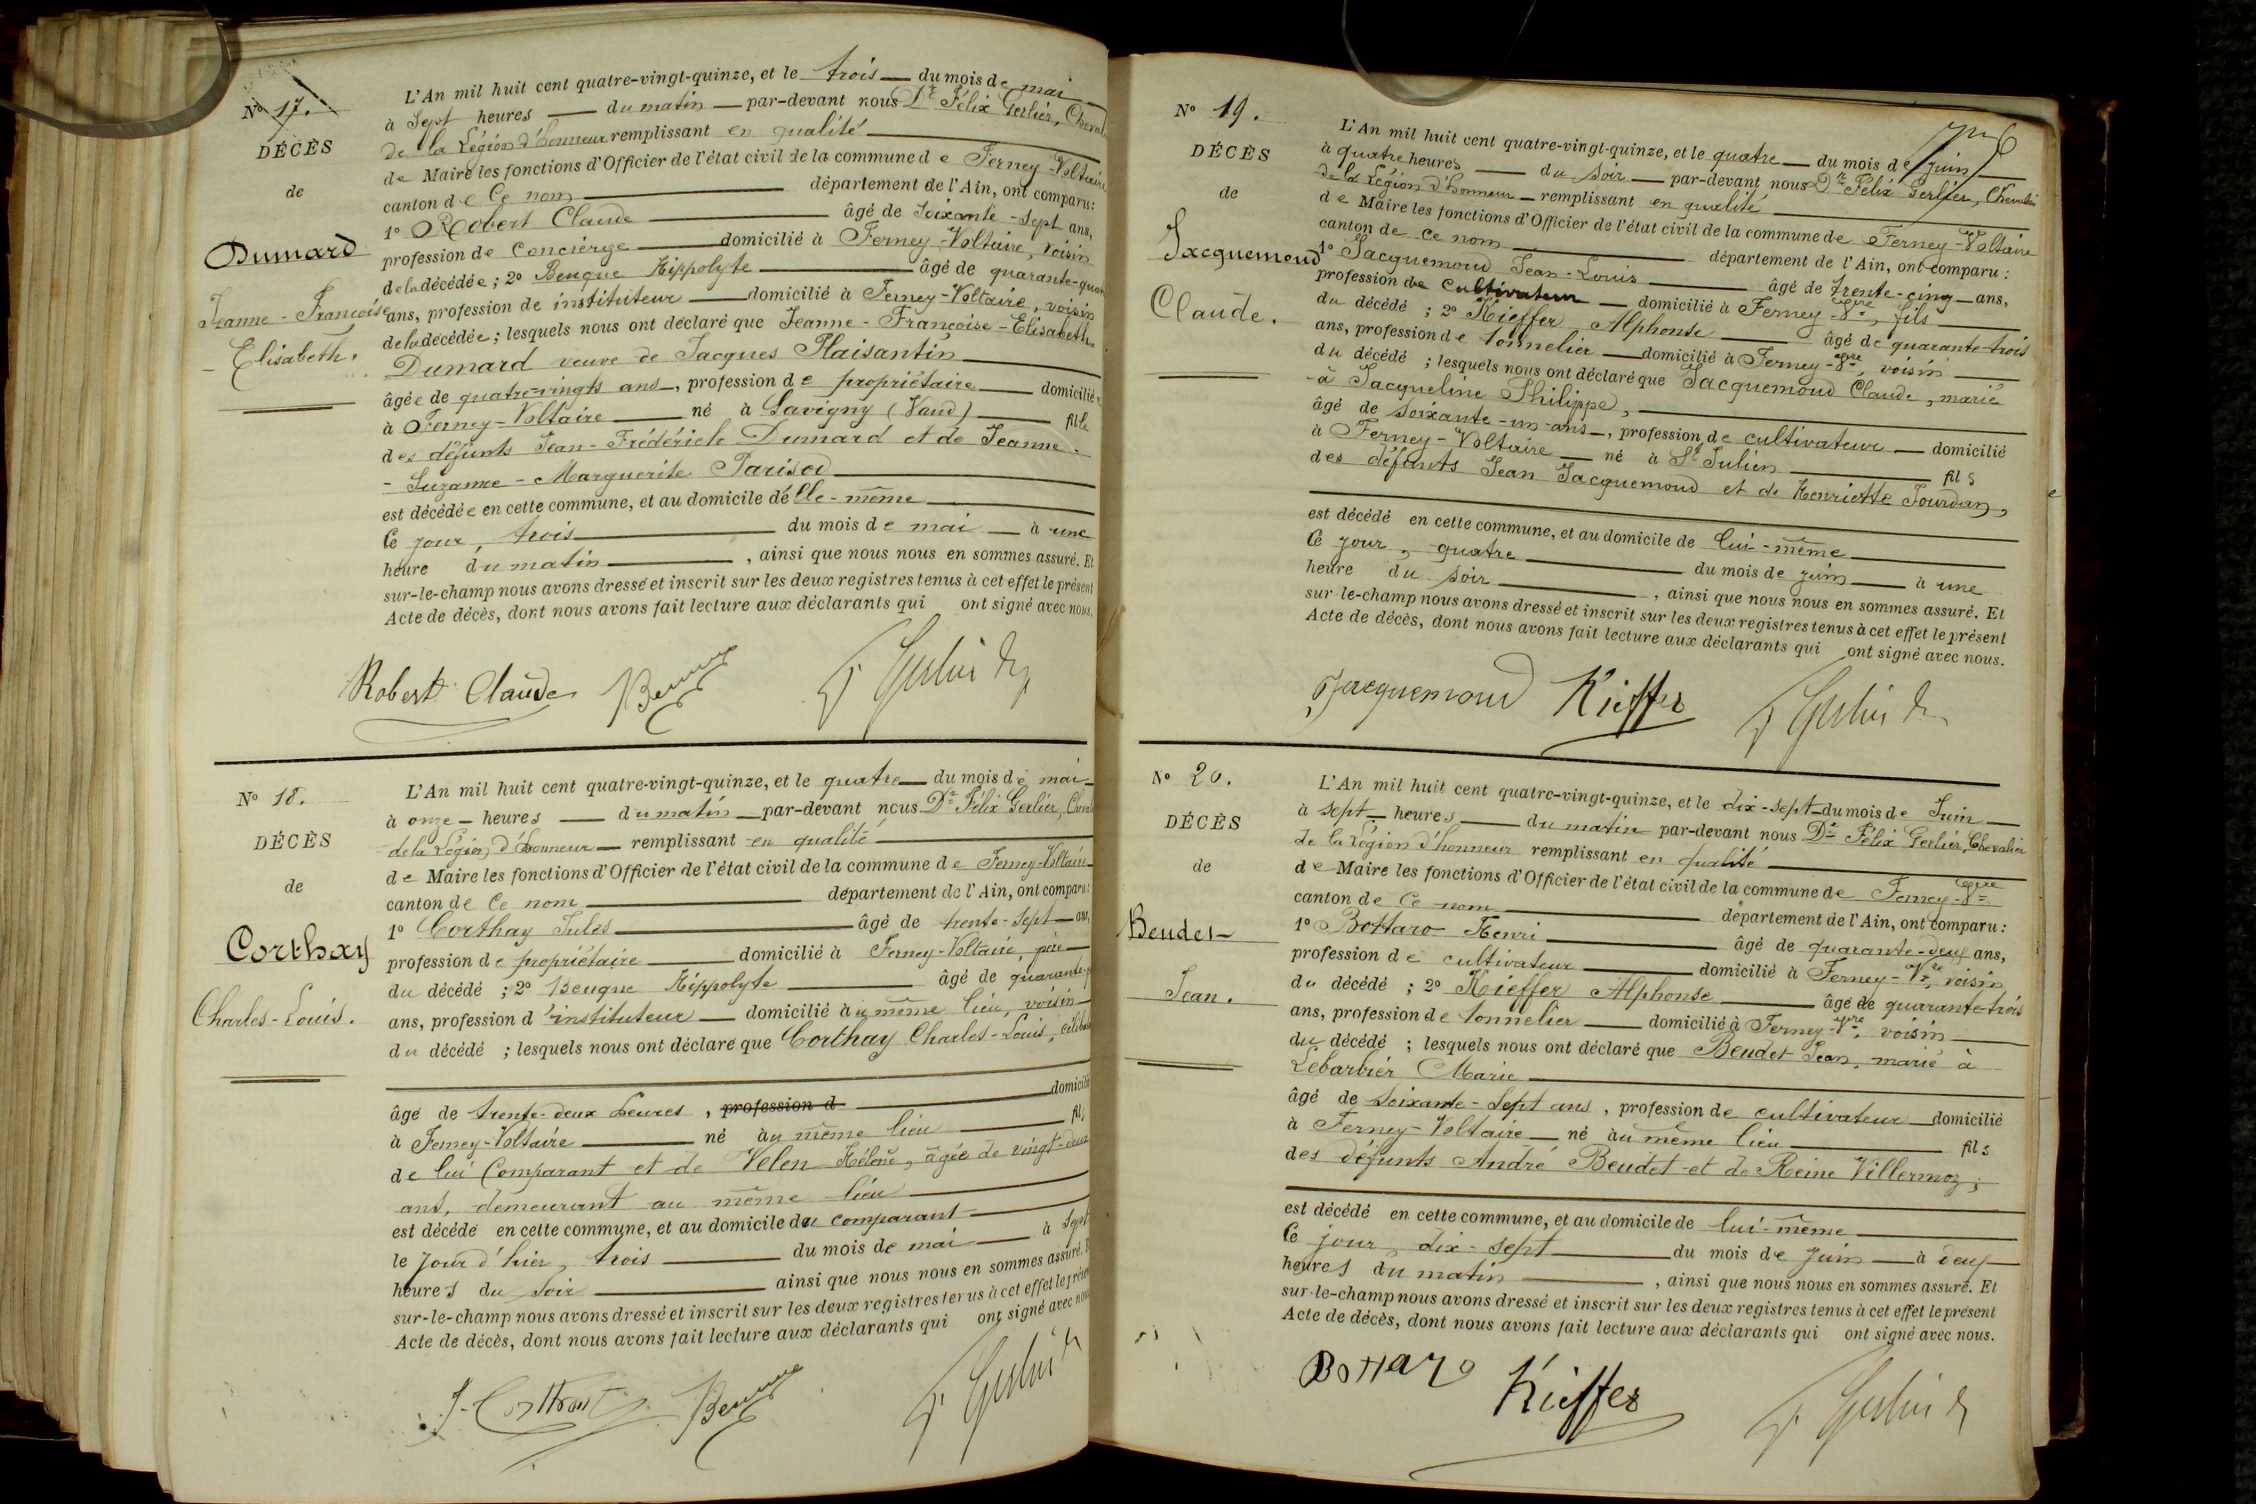 Nº 17.
DÉCÈS
de
Dumard
Jeanne-Françoise
-Elisabeth.
L'An mil huit cent quatre-vingt-quinze, et le trois du mois de mai
à Sept heures du matin par-devant nous Dr Félix Gerlier, Cheval
de la Légion d'honneur remplissant en qualité
de Maire les fonctions d'Officier de l'état civil de la commune de Ferney-Voltaire
canton de Ce nom département de l'Ain, ont comparu:
1º Robert Claude âgé de soixante-sept ans,
profession de concierge domicilié à Ferney-Voltaire, voisin
de la décédée; 2º Beuque Hippolyte âgé de quarante-quat
ans, profession de instituteur domicilié à Ferney-Voltaire, voisin
de la décédée; lesquels nous ont déclaré que Jeanne-Françoise-Elisabeth
Dumard veuve de Jacques Plaisantin
âgée de quatre-vingts ans, profession de propriétaire domiciliée
à Ferney-Voltaire né à Savigny (Vaud) fille
des défunts Jean-Frédérich Dumard et de Jeanne-
-Suzanne-Marguerite Parisod
est décédée en cette commune, et au domicile d'elle-même
Ce jour, trois du mois de mai à une
heure du matin, ainsi que nous nous en sommes assuré. Et
sur-le-champ nous avons dressé et inscrit sur les deux registres tenus à cet effet le présent
Acte de décès, dont nous avons fait lecture aux déclarants qui ont signé avec nous.
Robert Claude Beuque F. Gerlier Dr
Nº 18.
DÉCÈS
de
Corthay
Charles-Louis.
L'An mil huit cent quatre-vingt-quinze, et le quatre du mois de mai
à onze heures du matin par-devant nous Dr Félix Gerlier, Cheval
de la Légion d'Honneur remplissant en qualité
de Maire les fonctions d'Officier de l'état civil de la commune de Ferney-Voltaire
canton de Ce nom département de l'Ain, ont comparu:
1º Corthay Jules âgé de trente-sept ans,
profession de propriétaire domicilié à Ferney-Voltaire, père
du décédé; 2º Beuque Hippolyte âgé de quarante-q
ans, profession d'instituteur domicilié au même lieu, voisin
du décédé; lesquels nous ont déclaré que Corthay Charles-Louis, céliba
âgé de trente-deux heures, profession d domicilié
à Ferney-Voltaire né au même lieu fils
de lui Comparant et de Velen Hélène, âgée de vingt-deux
ans, demeurant au même lieu
est décédé en cette commune, et au domicile du comparant
le jour d'hier, trois du mois de mai à sept
heures du soir ainsi que nous nous en sommes assuré. E
sur-le-champ nous avons dressé et inscrit sur les deux registres tenus à cet effet le présen
Acte de décès, dont nous avons fait lecture aux déclarants qui ont signé avec nous
J. Corthay Beuque F. Gerlier Dr
Nº 19.
DÉCÈS
de
Jacquemoud
Claude.
L'An mil huit cent quatre-vingt-quinze, et le quatre du mois de juin
à quatre heures du soir par-devant nous Dr Félix Gerlier, Chevalier
de la Légion d'honneur remplissant en qualité
de Maire les fonctions d'Officier de l'état civil de la commune de Ferney-Voltaire
canton de ce nom département de l'Ain, ont comparu:
1º Jacquemoud Jean-Louis âgé de trente-cinq ans,
profession de cultivateur domicilié à Ferney-Vre, fils
du décédé; 2º Kieffer Alphonse âgé de quarante-trois
ans, profession de tonnelier domicilié à Ferney-Vre, voisin
du décédé; lesquels nous ont déclaré que Jacquemoud Claude, marié
à Jacqueline Philippe,
âgé de soixante-un-ans, profession de cultivateur domicilié
à Ferney-Voltaire né à St Julien fils
des défunts Jean Jacquemoud et de Henriette Jourdan,
est décédé en cette commune, et au domicile de lui-même
Ce jour, quatre du mois de juin à une
heure du soir, ainsi que nous nous en sommes assuré. Et
sur-le-champ nous avons dressé et inscrit sur les deux registres tenus à cet effet le présent
Acte de décès, dont nous avons fait lecture aux déclarants qui ont signé avec nous.
Jacquemoud Kieffer F. Gerlier Dr
Nº 20.
DÉCÈS
de
Beudet
Jean.
L'An mil huit cent quatre-vingt-quinze, et le dix-sept du mois de Juin
à sept heures du matin par-devant nous Dr Félix Gerlier, Chevalier
de la Légion d'honneur remplissant en qualité
de Maire les fonctions d'Officier de l'état civil de la commune de Ferney-Vre
canton de Ce nom département de l'Ain, ont comparu:
1º Bottaro Henri âgé de quarante-deux ans,
profession de cultivateur domicilié à Ferney-Vre, voisin
du décédé; 2º Kieffer Alphonse âgé de quarante-trois
ans, profession de tonnelier domicilié à Ferney-Vre, voisin
du décédé; lesquels nous ont déclaré que Beudet Jean, marié à
Lebarbier Marie
âgé de soixante-sept ans, profession de cultivateur domicilié
à Ferney-Voltaire né au même lieu fils
des défunts André Beudet et de Reine Villermoz,
est décédé en cette commune, et au domicile de lui-même
Ce jour, dix-sept du mois de juin à deux
heures du matin, ainsi que nous nous en sommes assuré. Et
sur-le-champ nous avons dressé et inscrit sur les deux registres tenus à cet effet le présent
Acte de décès, dont nous avons fait lecture aux déclarants qui ont signé avec nous.
Bottaro Kieffer F. Gerlier Dr